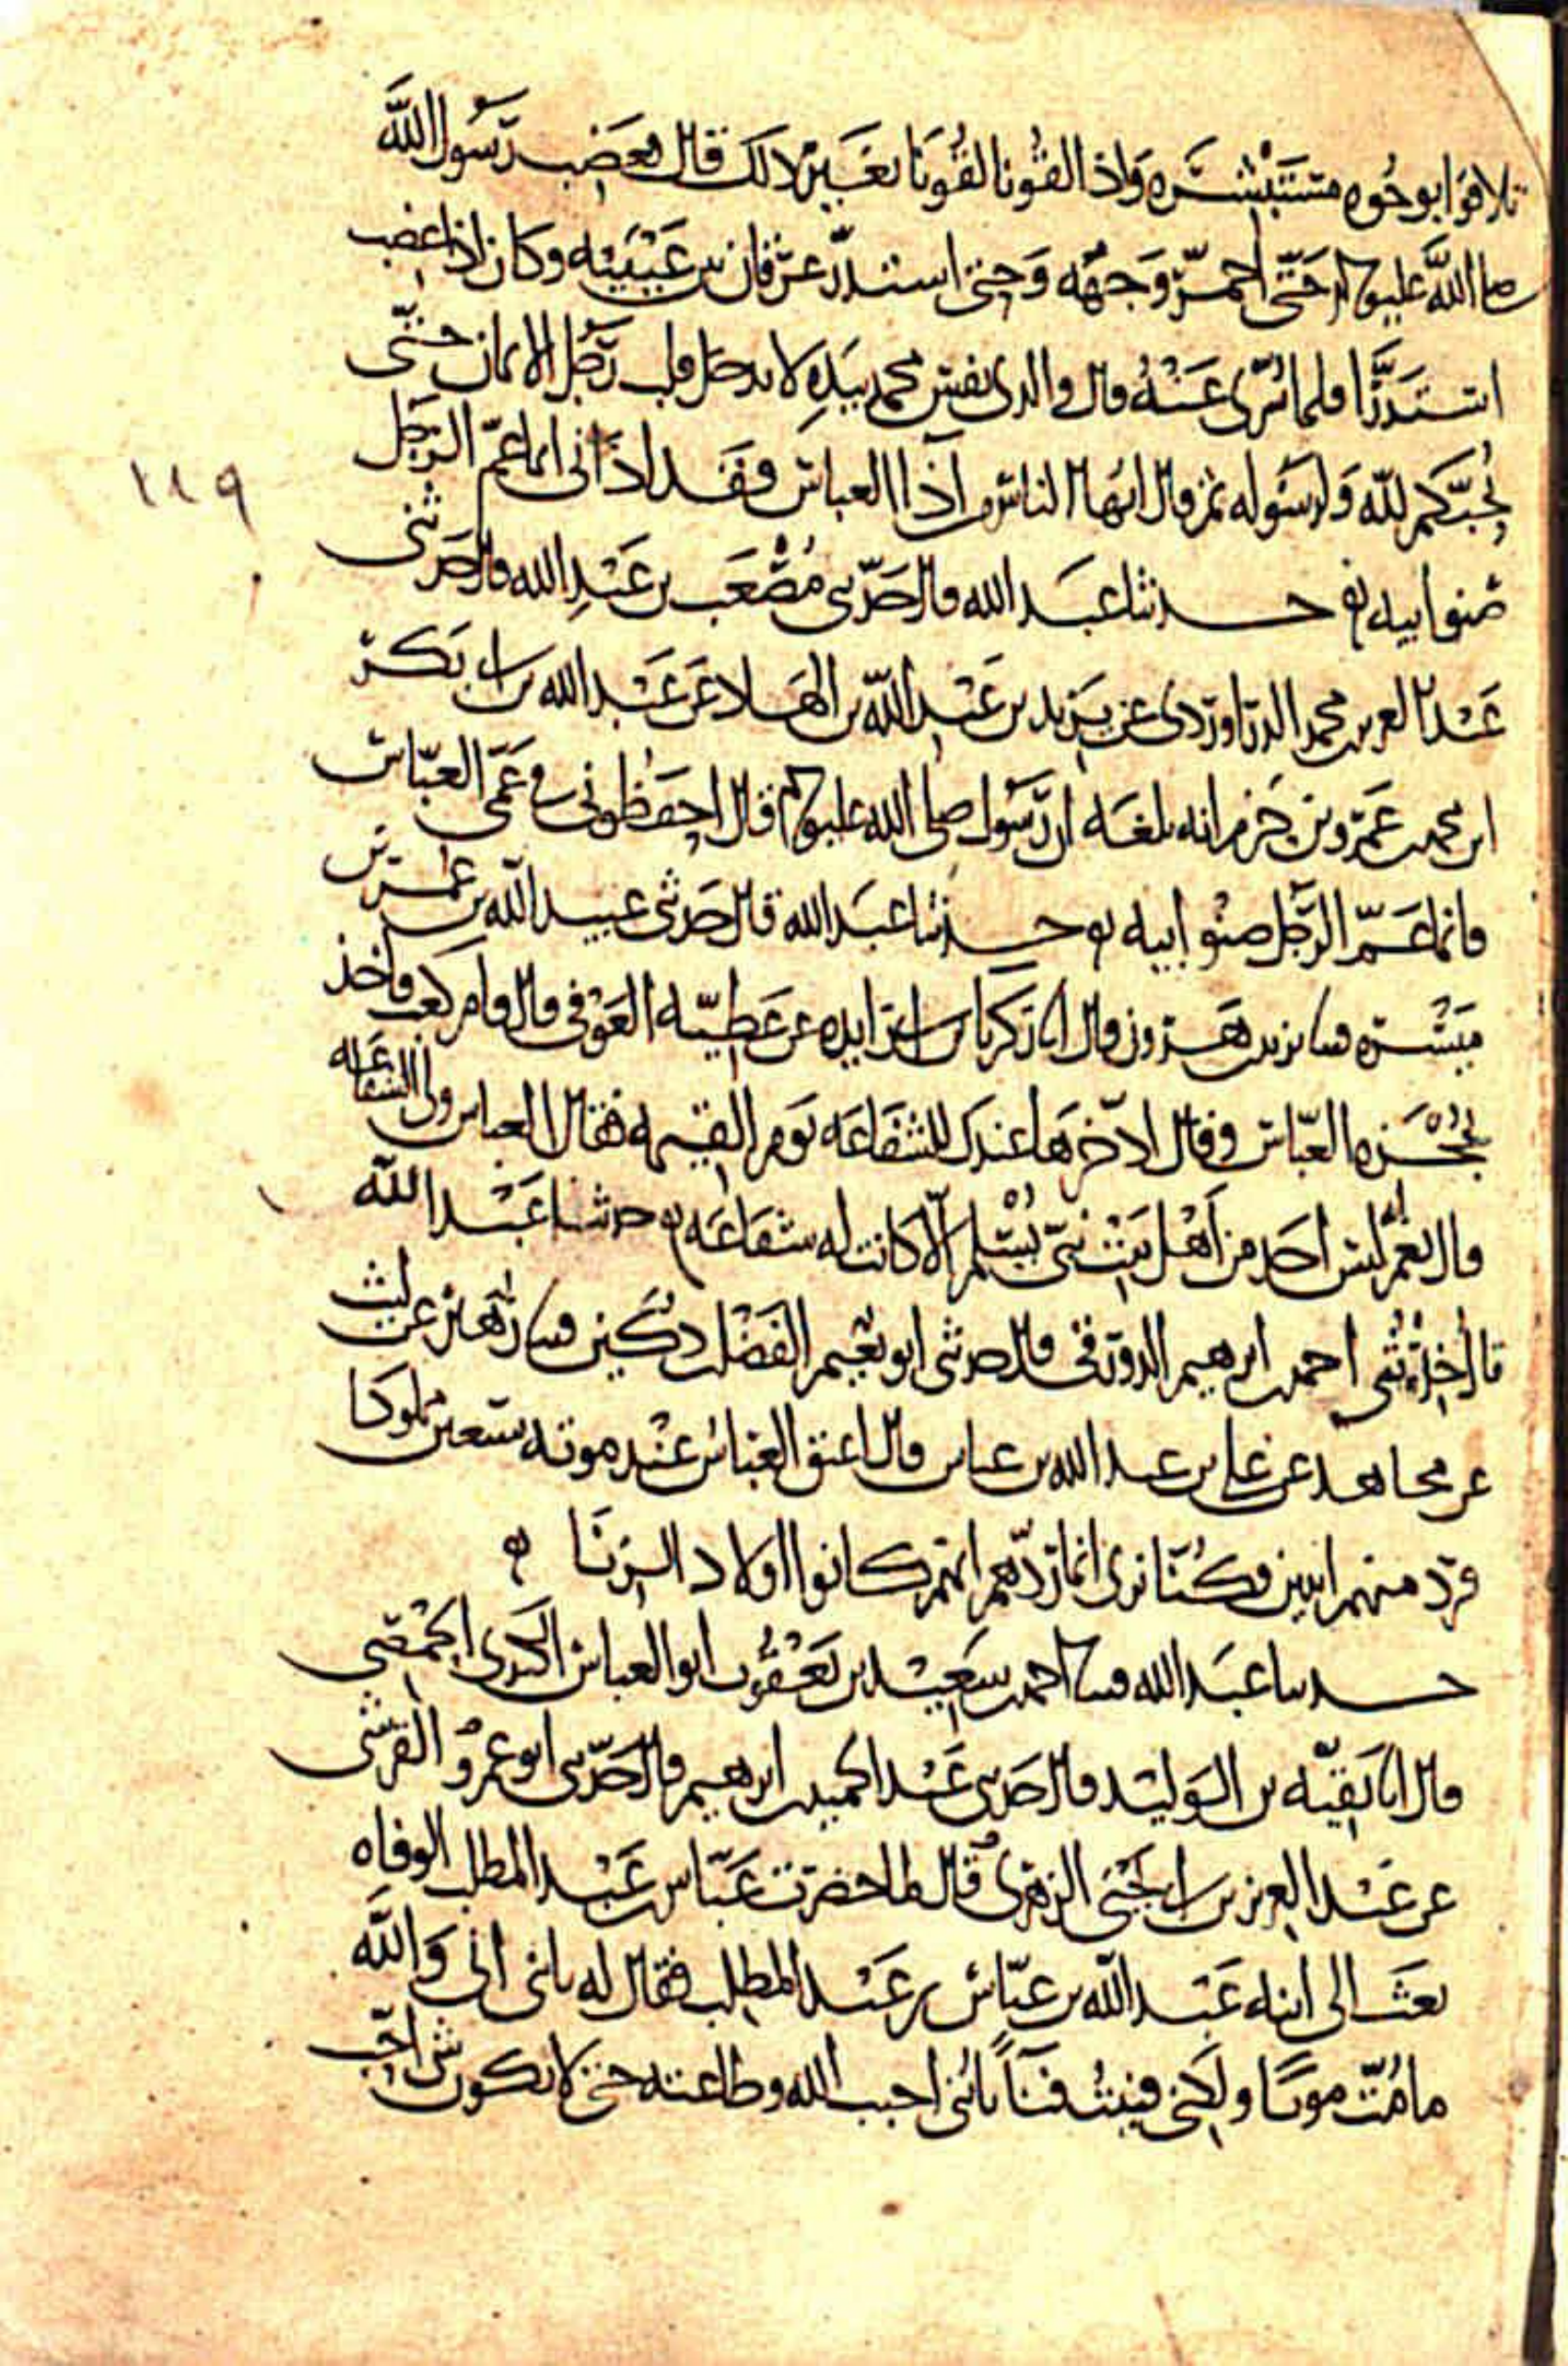 تلاقوا بوجوه مستبشره واذا لقونا لقونا بغير ذلك قال فغضب رسول الله
صلى الله عليه وسلم حتى احمر وجهه وحتى استدر عرقان بين عينيه وكان اذا غضب
استدرا فلما سري عنه قال والذي نفس محمد بيده لا يدخل قلب رجل الايمان حتى
يحبكم لله ولرسوله ثم قال ايها الناس من آذا العباس فقد اذاني انما عم الرجل
١٨٩
صنو ابيه حدثنا عبد الله قال حدثني مصعب بن عبد الله قال حدثني
عبد العزيز بن محمد الدراوردي عن يزيد بن عبد الله بن الهاد عن عبد الله بن ابي بكر
ابن محمد بن عمرو بن حزم انه بلغه ان رسول صلى الله عليه وسلم قال احفظوني في عمي العباس
فانما عم الرجل صنو ابيه حدثنا عبد الله قال حدثني عبيد الله بن عمر بن
ميسره قثنا يزيد بن هرون قال انا زكريا بن ابي زايده عن عطيه العوفي قال قام كعب فاخذ
بحجزه العباس وقال ادخرها عندك للشفاعه يوم القيمه فقال العباس ولي الشفاعه
قال نعم انه ليس احد من اهل بيت نبي يسلم الا كانت له شفاعه حدثنا عبد الله
قال حدثني احمد بن ابرهيم الدورقي قال حدثني ابو نعيم الفضل بن دكين قثنا زهير عن ليث
عن مجاهد عن علي بن عبد الله بن عباس قال اعتق العباس عند موته سبعين مملوكا
فرد منهم اثنين فكنا نرى انما ردهم انهم كانوا اولاد الزنا
حدثنا عبد الله قثنا احمد بن سعيد بن يعقوب ابو العباس الكندي الحمصي
قال انا بقيه بن الوليد قال حدثني عبد الحميد بن ابرهيم قال حدثني ابو عمرو القرشي
عن عبد العزيز بن ابي يحيى الزهري قال لما حضرت عباس بن عبد المطلب الوفاه
بعث الى ابنه عبد الله بن عباس بن عبد المطلب فقال له يا بني اني والله
ما مت موتا ولكني فنيت فنآ يا بني احبب الله وطاعته حتى لا يكون شي احب